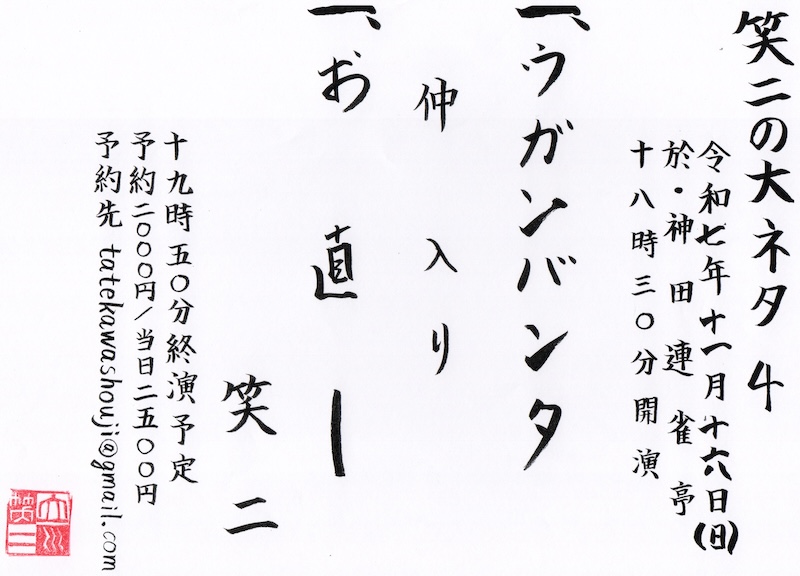 笑二の大ネタ 4
令和七年十一月十六日(日)
於・神田連雀亭
十八時三〇分開演
一、ウガンバンタ
仲入り
一、お直し
笑二
十九時五〇分終演予定
予約二〇〇〇円/当日二五〇〇円
予約先 tatekawashouji@gmail.com
立川
笑二